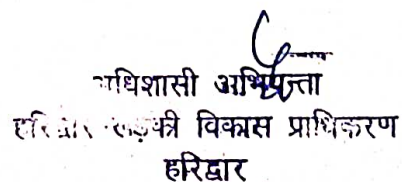 अधिशासी अभियन्ता
हरिद्वार रूड़की विकास प्राधिकरण
हरिद्वार